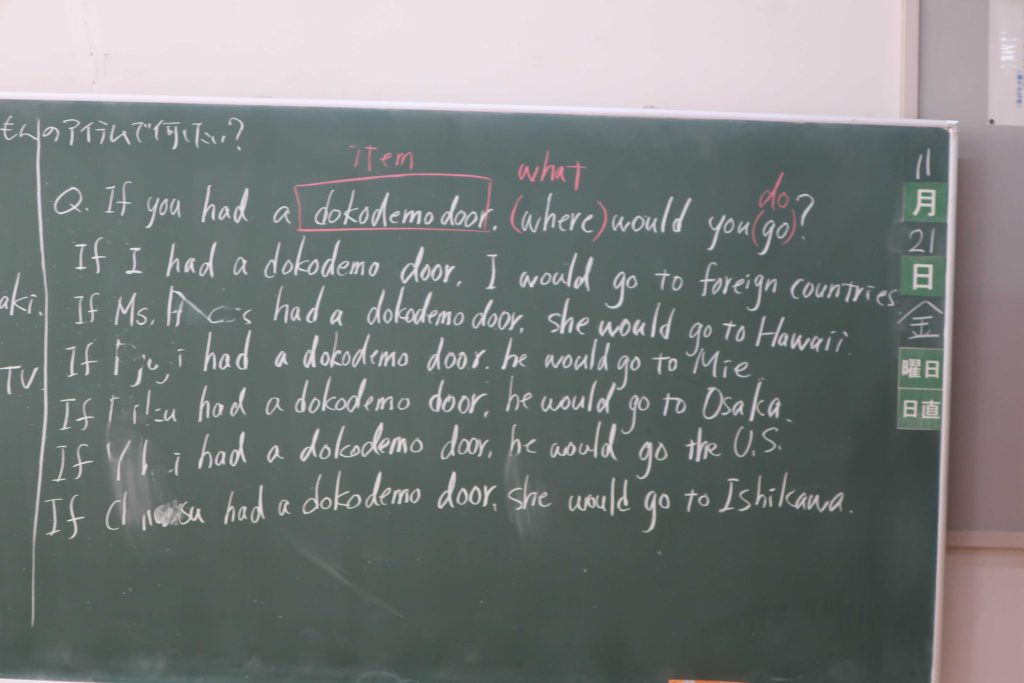 もんのアイテムで何したい?
item
what
do
Q. If you had a dokodemo door, (where) would you (go)?
If I had a dokodemo door, I would go to foreign countries
If Ms. had a dokodemo door, she would go to Hawaii.
If had a dokodemo door, he would go to Mie.
If had a dokodemo door, he would go to Osaka.
If had a dokodemo door, he would go the U.S.
If had a dokodemo door, she would go to Ishikawa.
aki.
TV.
11
月
21
日
金
曜日
日直